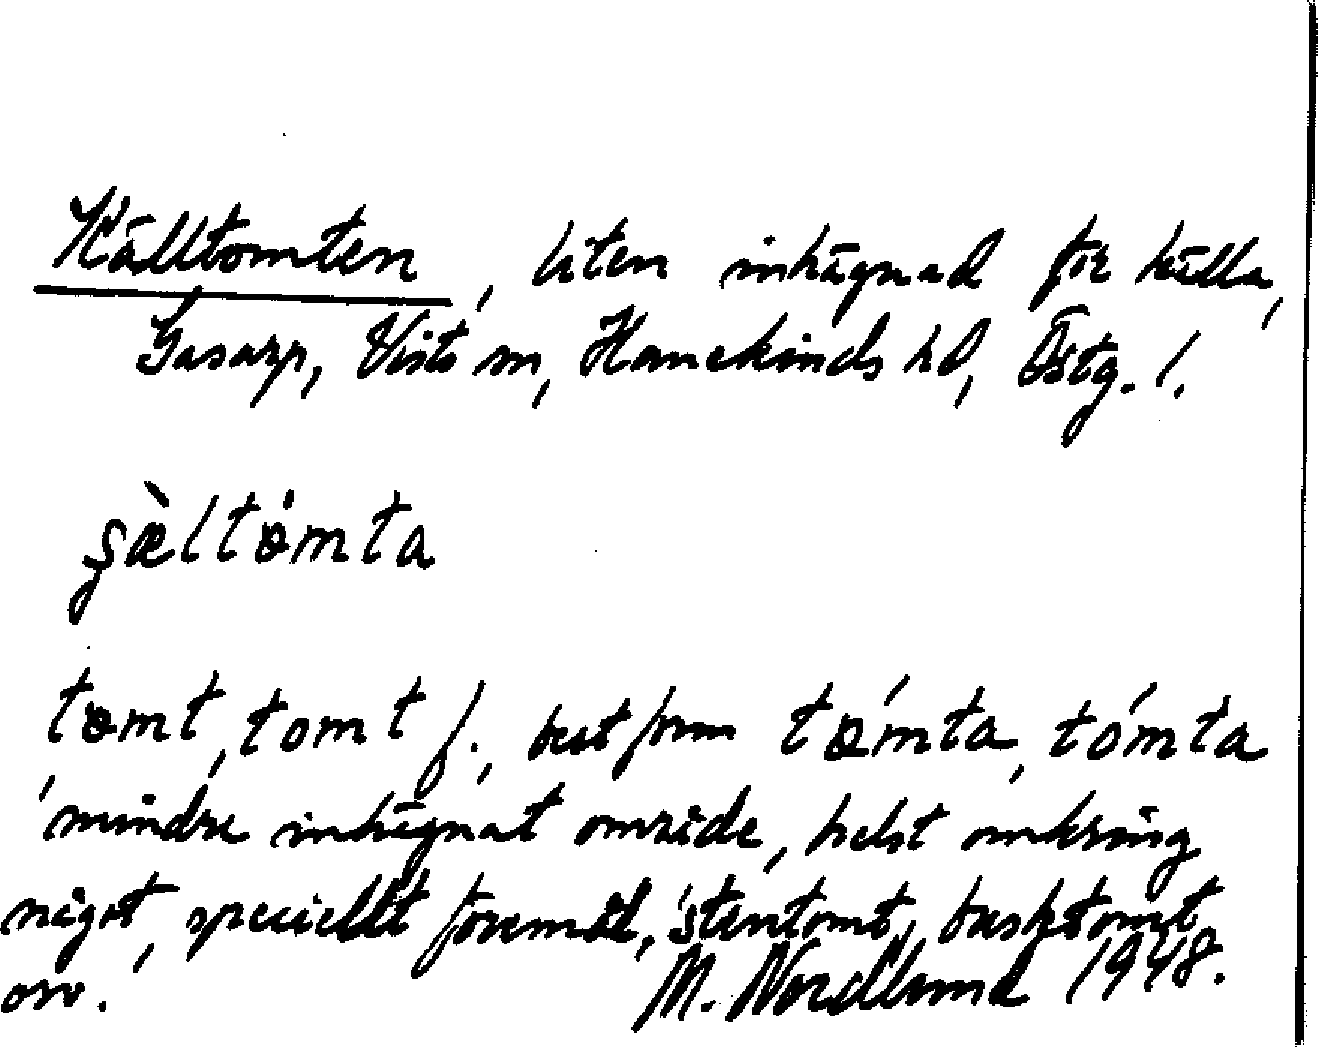 Källtomten, liten inhägnad för källa,
Gasarp, Vists sn, Hanekinds hd, Östg. l.
şæ̀ltɵ̇mta
tɵmt, tomt f., best form tɵ́mta, tómta
'mindre inhägnat område, helst omkring
något, speciellt föremål, 'stentomt,
osv. M. Nordlund 1948.